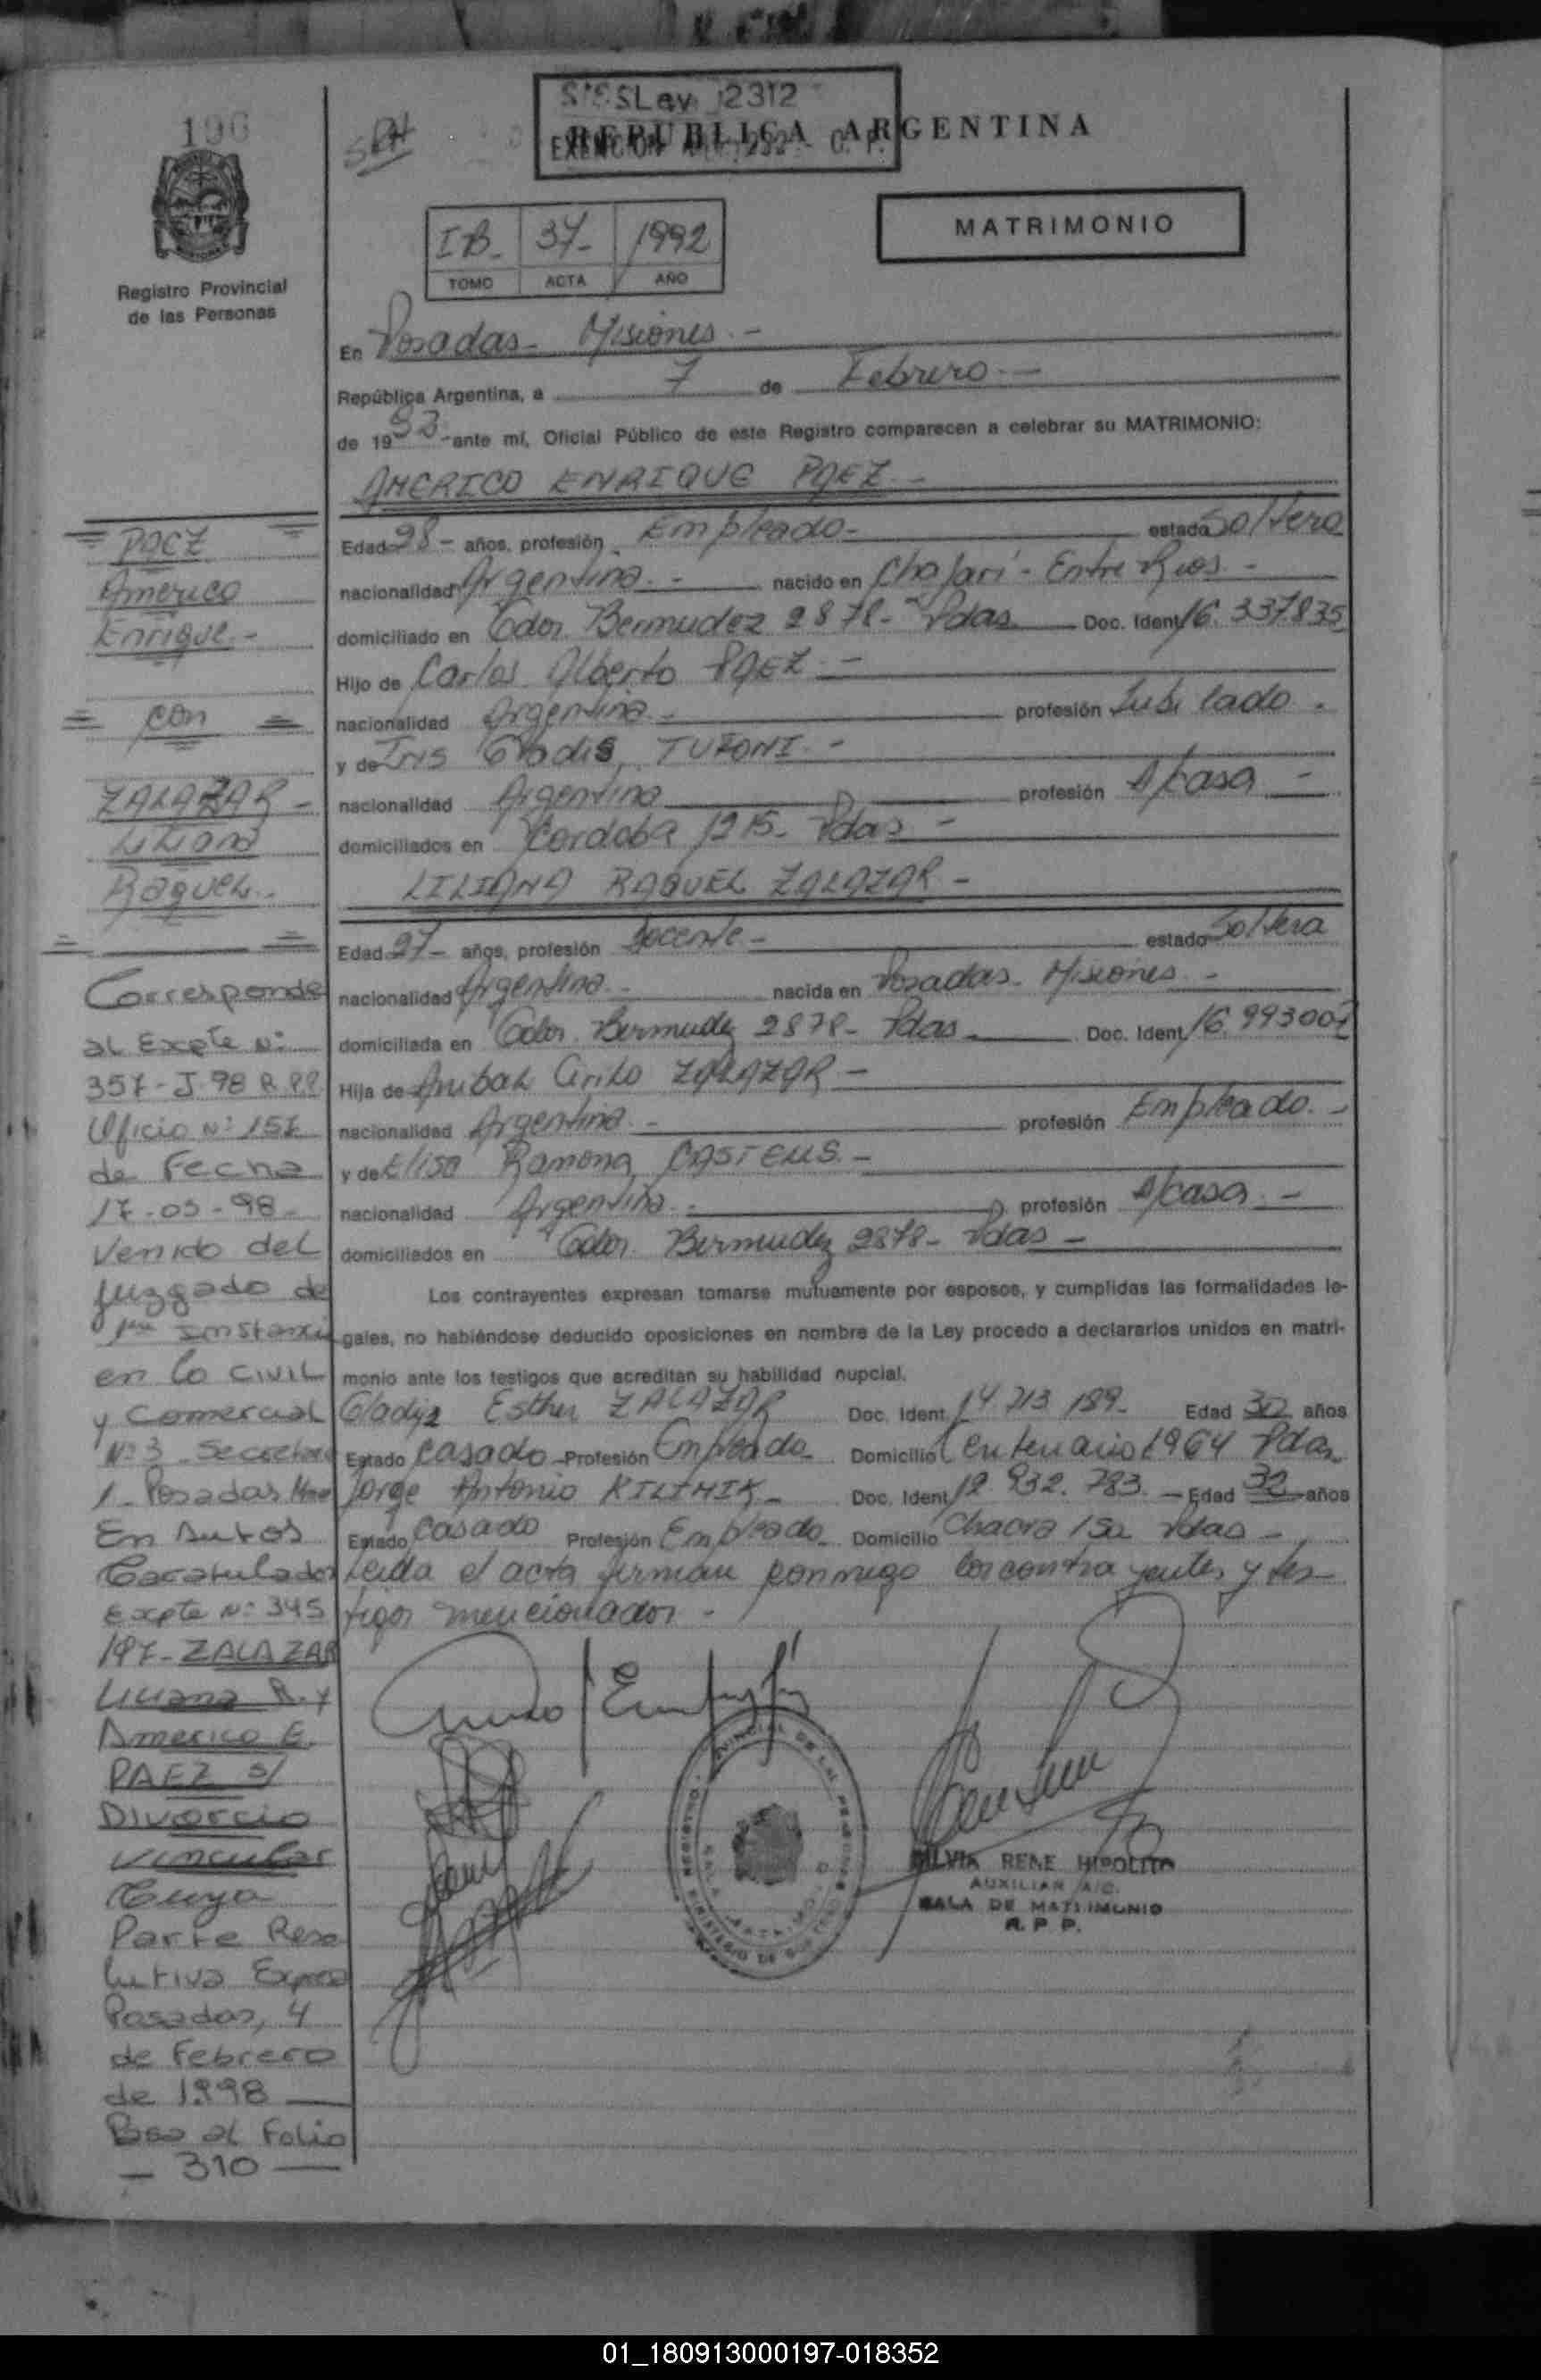 196
S/ESLey 2312
REPUBLICA ARGENTINA
MATRIMONIO
Registro Provincial
de las Personas
IB. 37- 1992
TOMO ACTA AÑO
En Posadas - Misiones.-
República Argentina, a 7 de Febrero.-
de 19 -ante mí, Oficial Público de este Registro comparecen a celebrar su MATRIMONIO:
AMERICO ENRIQUE PAEZ.-
Edad 28- años, profesión Empleado- estado Soltero
nacionalidad Argentina.- nacido en Chajarí - Entre Rios.-
domiciliado en Cdor. Bermudez 2878- Pdas Doc. Ident. 16.337.835
Hijo de Carlos Alberto PAEZ.-
nacionalidad Argentina.- profesión Jubilado.
y de Iris Gladis, TUFONI.-
nacionalidad Argentina profesión A/casa-
domiciliados en Cordoba 1215- Pdas-
LILIANA RAQUEL ZALAZAR-
Edad 27- años, profesión Docente- estado Soltera
nacionalidad Argentina.- nacida en Posadas- Misiones.-
domiciliada en Cdor. Bermudez 2878- Pdas- Doc. Ident. 16.993007
Hija de Anibal Cirilo ZALAZAR-
nacionalidad Argentina.- profesión Empleado.-
y de Elisa Ramona, CASTELLS.-
nacionalidad Argentina.- profesión A/casa.-
domiciliados en Cdor. Bermudez 2878- Pdas-
Los contrayentes expresan tomarse mutuamente por esposos, y cumplidas las formalidades le-
gales, no habiéndose deducido oposiciones en nombre de la Ley procedo a declararlos unidos en matri-
monio ante los testigos que acreditan su habilidad nupcial.
Gladys Esther ZALAZAR Doc. Ident. 14 713 189- Edad 30 años
Estado casado- Profesión Empleado- Domicilio Centenario 1964 Pdas.
Jorge Antonio Doc. Ident. 12.932.783.- Edad 32 años
Estado Casado Profesión Empleado- Domicilio Chacra 152 Pdas-
Leida el acta firman conmigo los contrayentes y tes-
tigos mencionados.-
SILVIA RENE HIPOLITO
AUXILIAR A/C.
SALA DE MATRIMONIO
R. P. P.
PAEZ
Americo
Enrique.-
con
ZALAZAR-
Liliana
Raquel.-
Corresponde
al Expte N:
357-J-98 R.P.P.
Oficio N: 157
de Fecha
17-03-98-
Venido del
Juzgado de
1ra Instanci
en lo Civil
y Comercial
N:3 - Secretaria
1- Posadas Mnes
En Autos
Caratulados
Expte N: 345
197- ZALAZAR
Liliana R. y
Americo E.
PAEZ s/
Divorcio
Vincular
Cuya
Parte Reso
lutiva Expresa
Posadas, 4
de Febrero
de 1998
Pasa al Folio
- 310 -
01_180913000197-018352